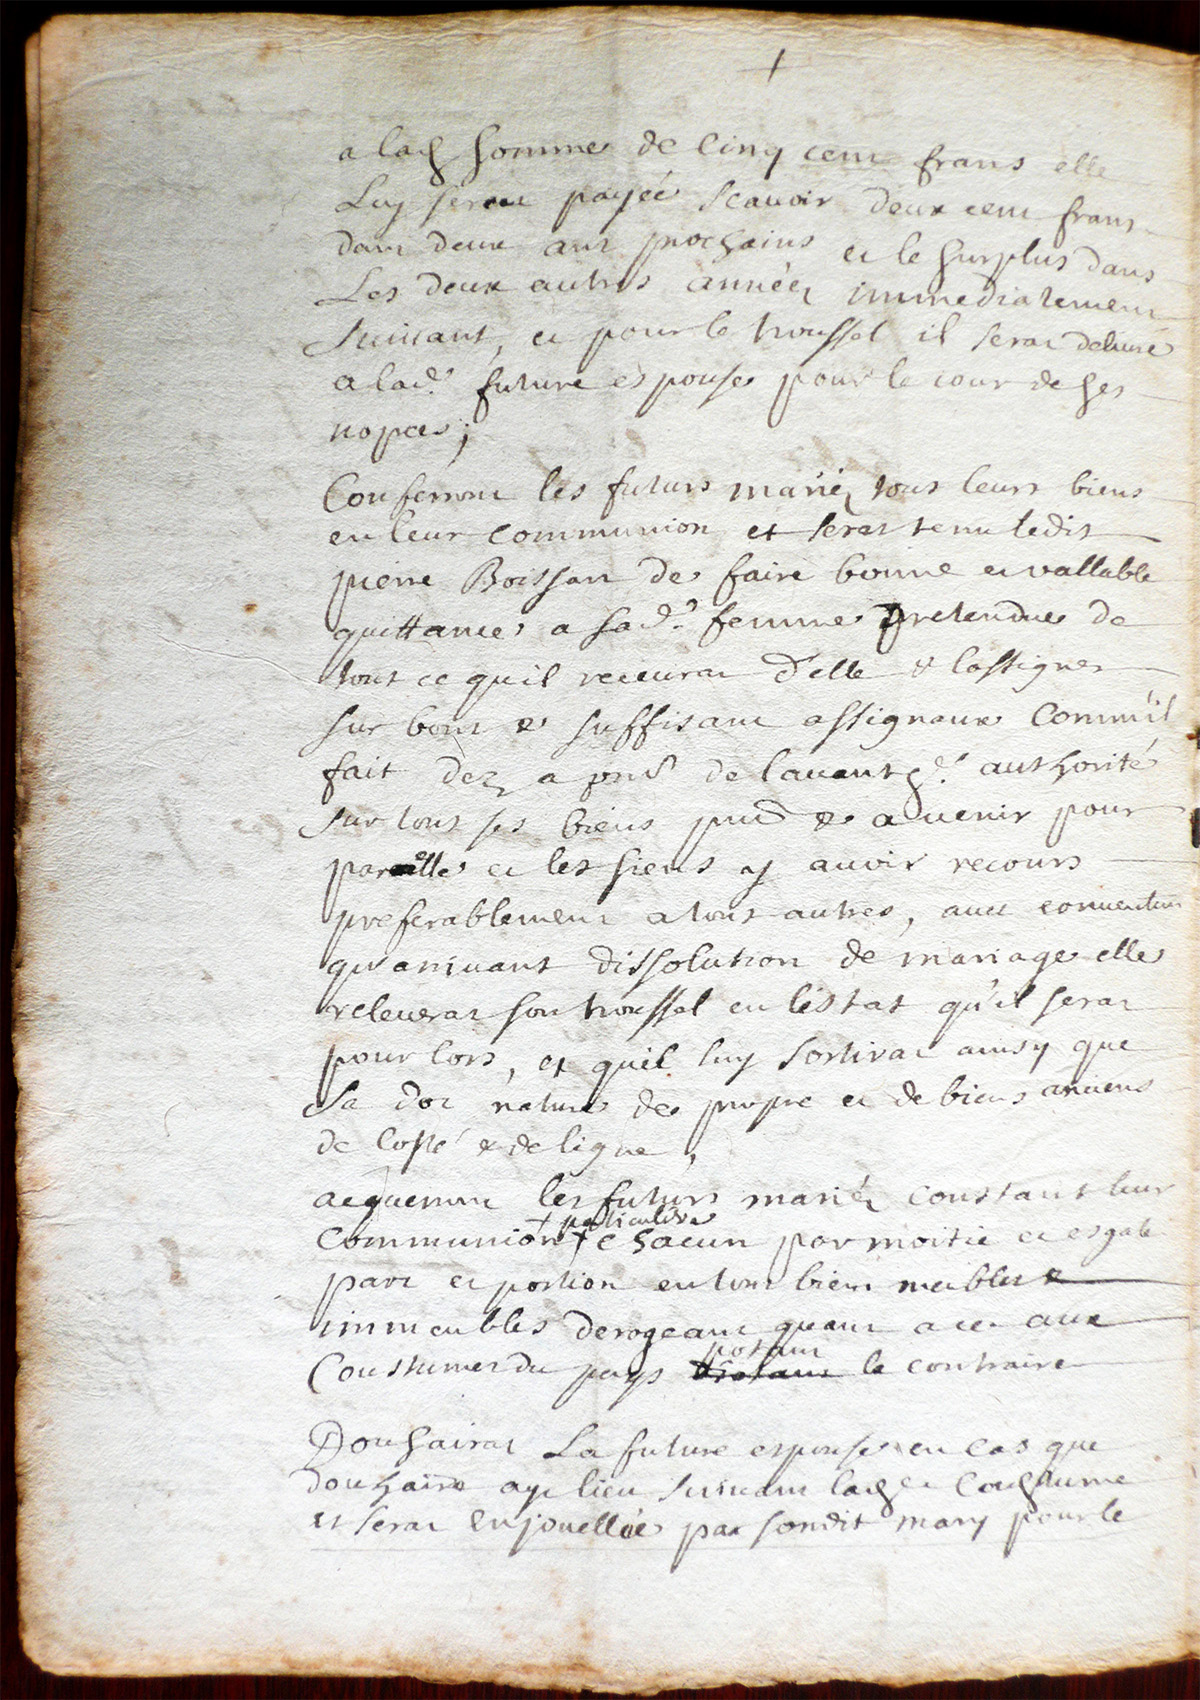 a lad somme de Cinq cent frans elle
Luy serat payéé scauoir deux cent frans
dans deux ans prochains et le surplus dans
Les deux autres annéés immediatement
suiuant, et pour le troussel il serat deliuré
a lad.e future espouse pour le jour de ses
nopces;
Conferront les futurs mariéz tous leurs biens
en leur communion et serat tenu ledit
pierre Boissart de faire bonne et vallable
quittance a sad.e femme pretendue de
tout ce quil receurat d'elle & lassigner
sur bons & suffisant assignaux Comm'il
fait dez a pnt de lauant d.e authorité
sur tous ses biens pnt & a venir pour
par elle et les siens y auoir recours
preferablement a tous autres, auec conuention
qu'arriuant dissolution de mariage elle
releuerat son troussel en lestat qu'il serat
pour lors, et quil luy sortirat ainsy que
sa dot nature de propre et de biens anciens
de costé & de ligne,
acquerront les futurs mariéz constant leur
+ particulire
communion + chacun par moitie et esgale
part et portion en tous biens meibles &
immeubles derogeant quant a ce aux
potant
Coustumes du pays le contraire
Douhairat La future espouse en cas que
douhaire aye lieu suiuant lad Coustume
et serat enjouelléé par sondit mary pour le